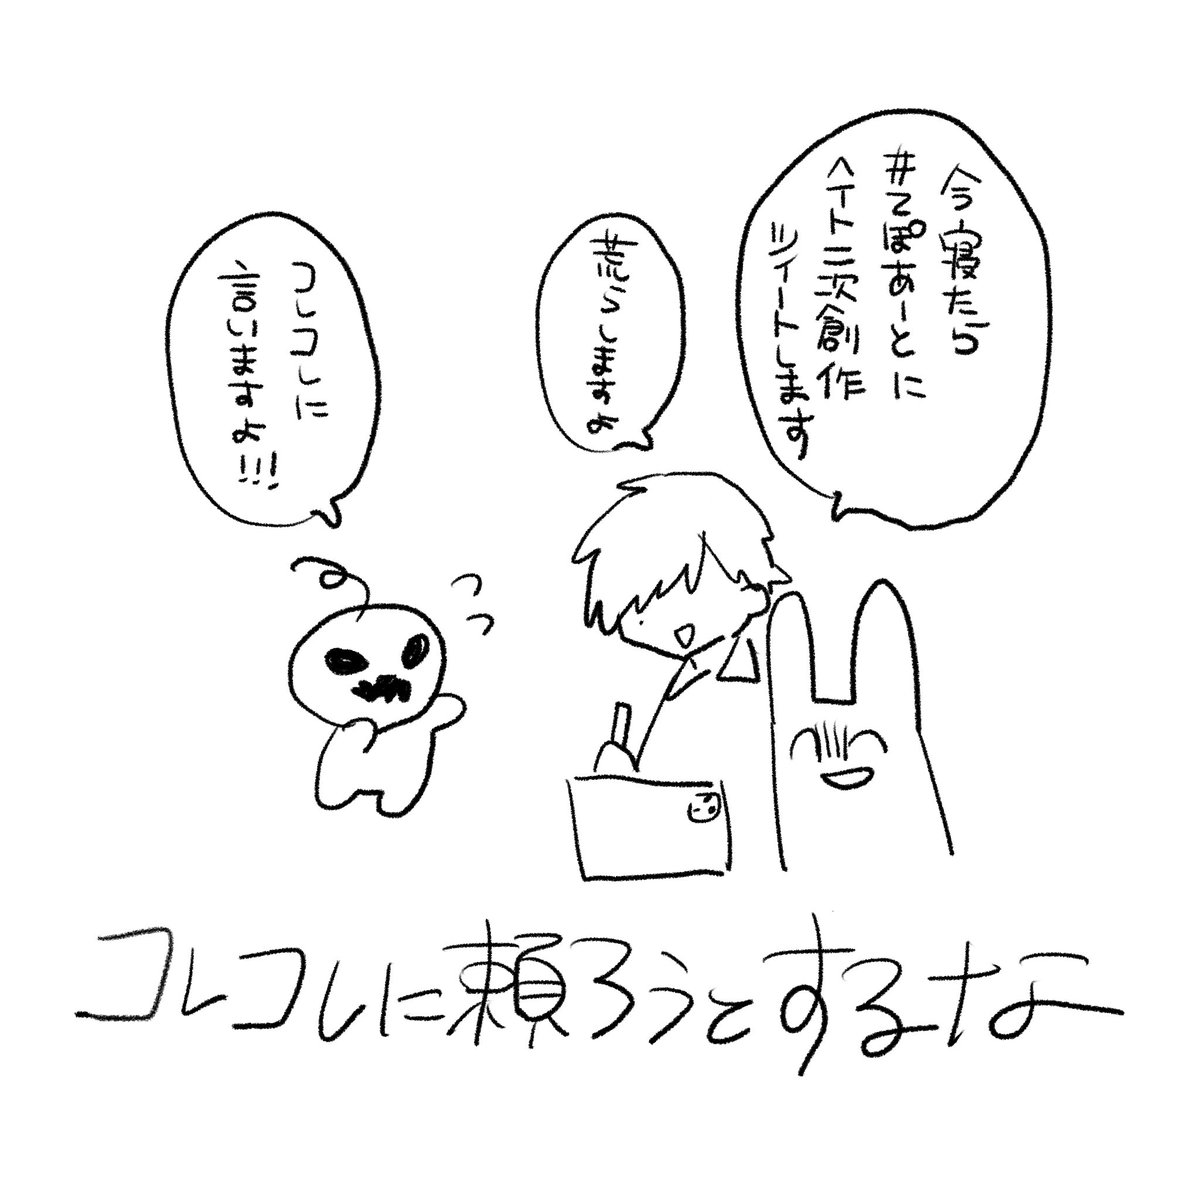 今寝たら
#てぽあーとに
ヘイト二次創作
シィートします
荒らしますよ
コレコレに
言いますよ!!!
コレコレに頼ろうとするな